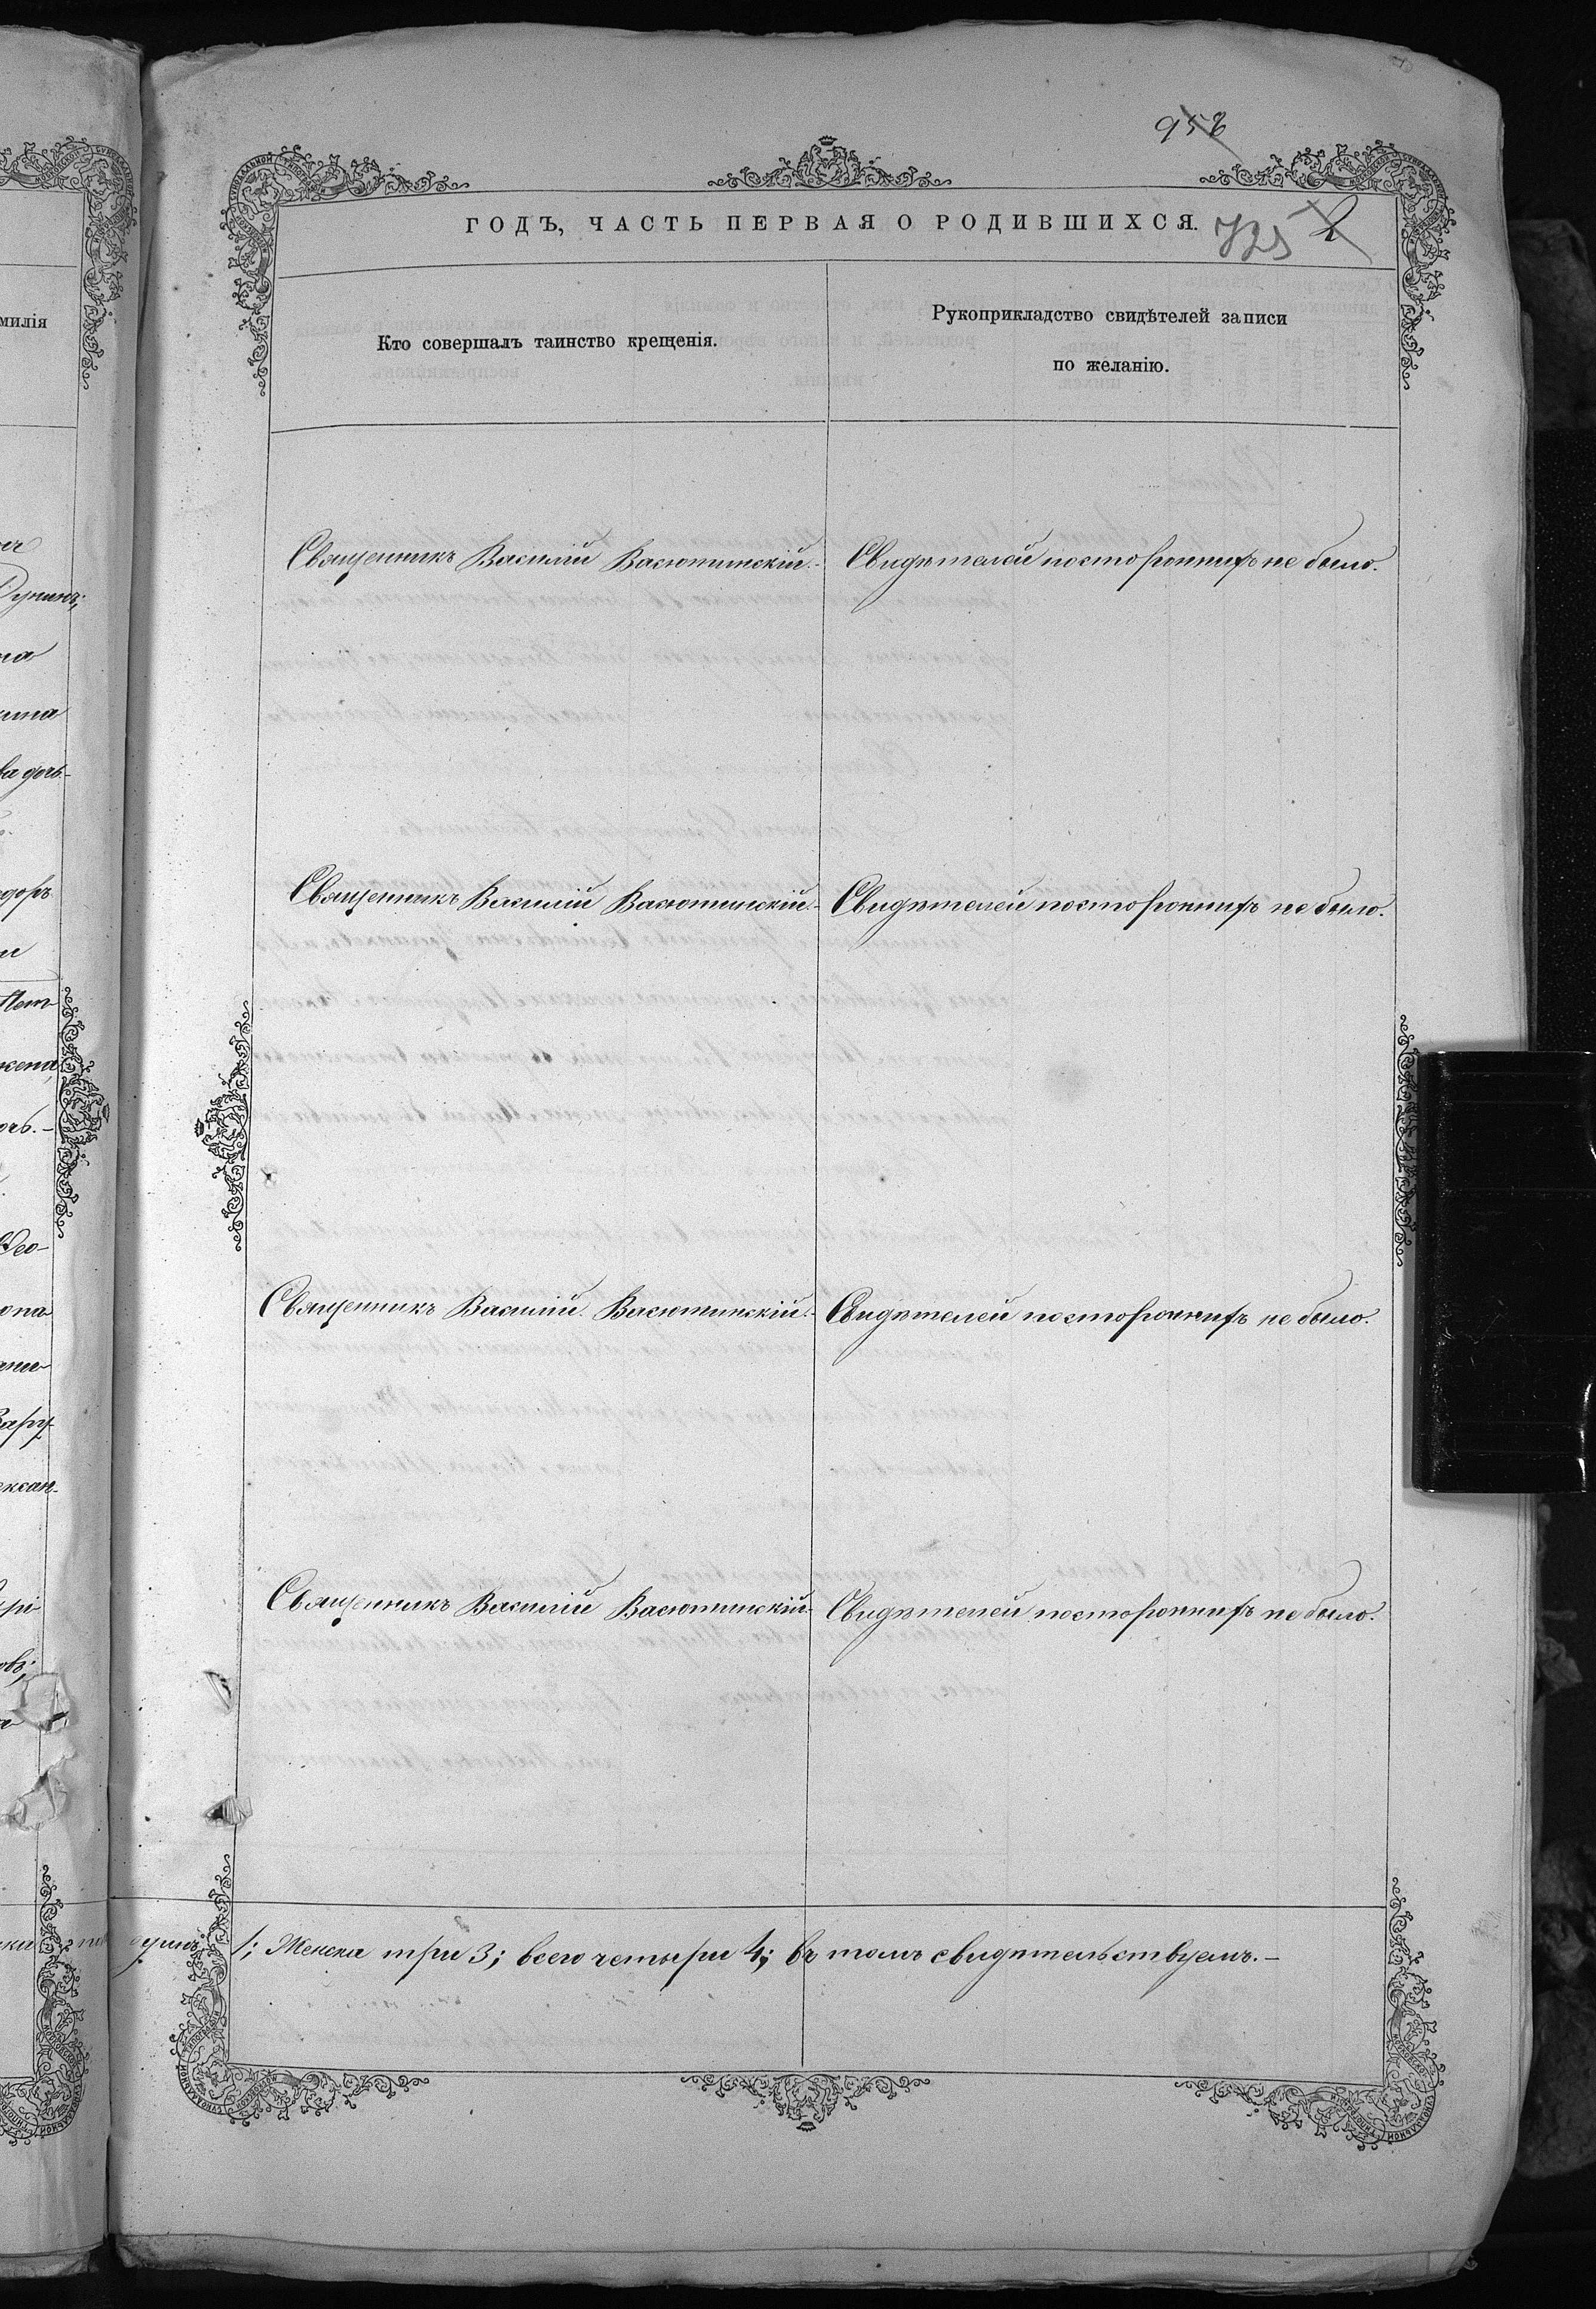 958
ГОДЪ, ЧАСТЬ ПЕРВАЯ О РОДИВШИХСЯ.
725 2
милія
Кто совершалъ таинство крещенія.
Рукоприкладство свидѣтелей записи
по желанію.
Священникъ Василій Васютинскій. Свидѣтелей постороннихъ не было.
Священникъ Василій Васютинскій. Свидѣтелей постороннихъ не было.
Священникъ Василій Васютинскій. Свидѣтелей постороннихъ не было.
Священникъ Василій Васютинскій. Свидѣтелей постороннихъ не было.
одинъ 1; Женска три 3; всего четыри 4; въ томъ свидѣтельствуемъ.-